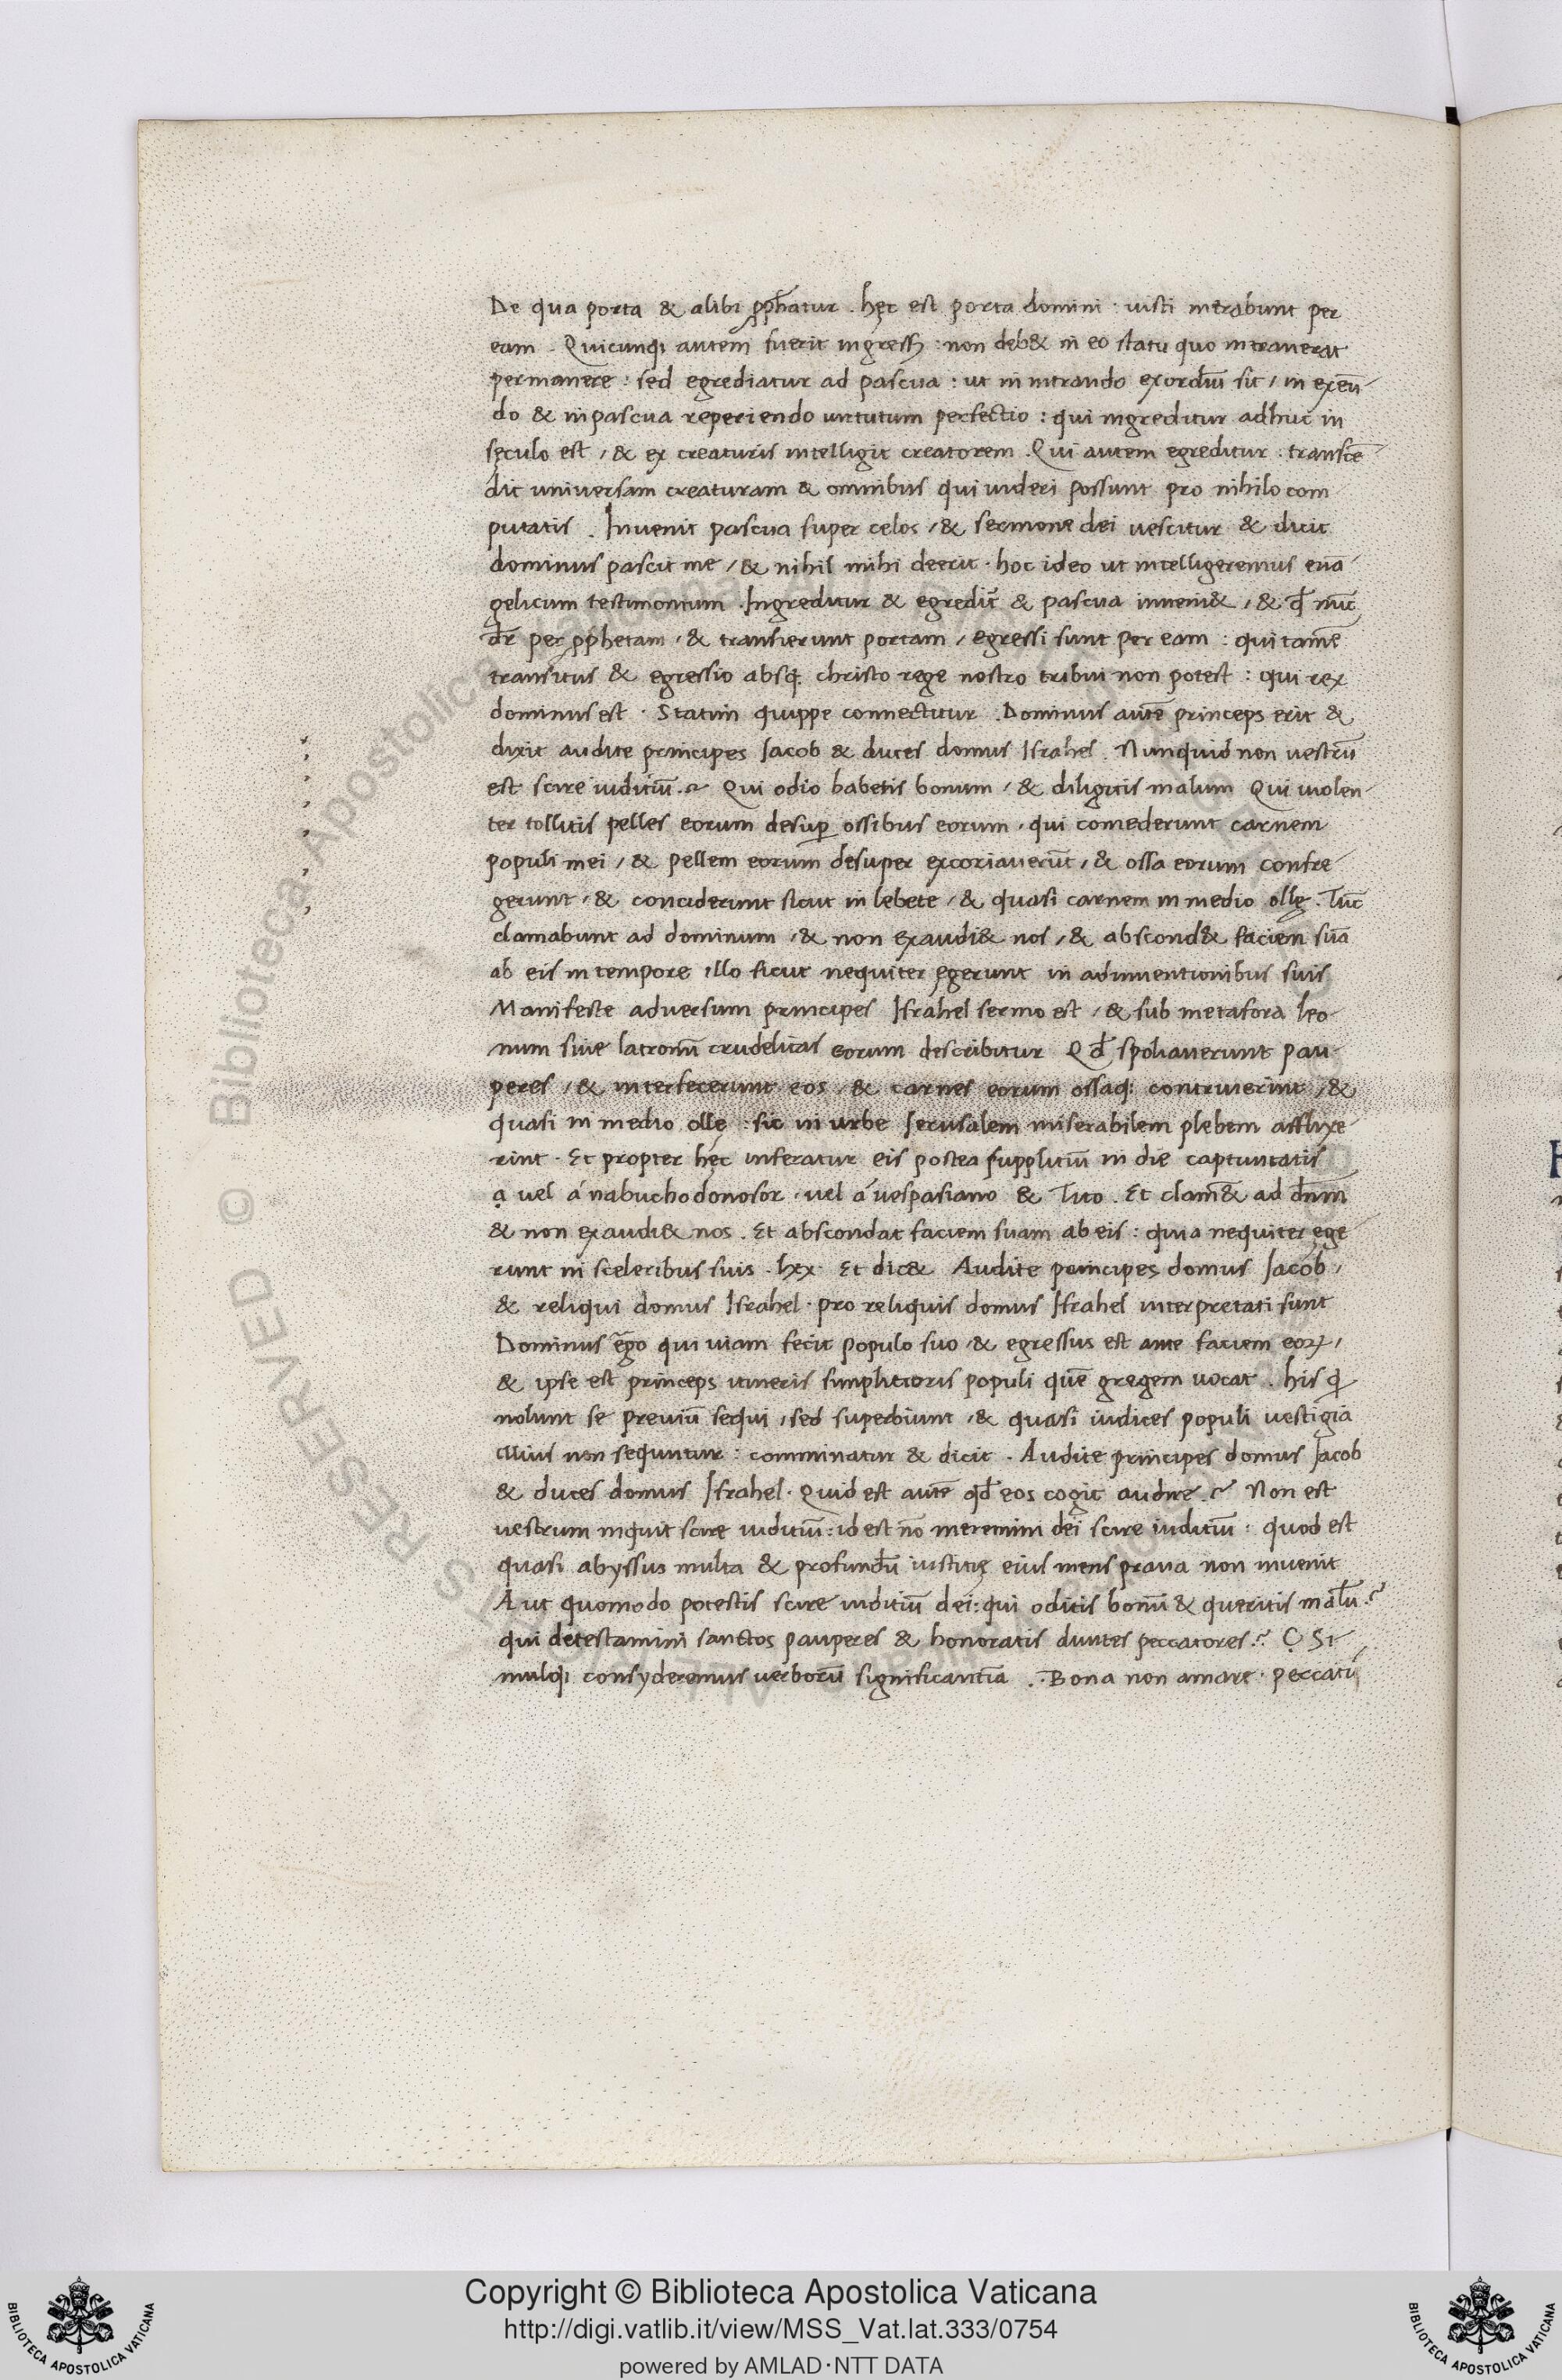 De qua porta & alibi ꝓph̄atur . hęc est porta domini : iusti intrabunt per
eam . Quicunqꝫ autem fuerit ingressꝰ : non deb& in eo statu quo intrauerat
permanere : sed egrediatur ad pascua : ut in intrando exordiū sit / in exeū-
do & in pascua reperiendo uirtutum perfectio : qui ingreditur adhuc in
sęculo est / & ex creaturis intelligit creatorem . Qui autem egreditur : transcē-
dit universam creaturam & omnibus qui uideri possunt pro nihilo com-
putatis . Inuenit pascua super celos / & sermone dei uescitur & dicit
dominus pascit me / & nihil mihi deerit . hoc ideo ut intelligeremus euā-
gelicum testimonium . Ingreditur & egredit̄ & pascua inueni& / & qđ nūc
dr̄ per ꝓphetam / & transierunt portam / egressi sunt per eam : qui tamē
transitus & egressio absqꝫ christo rege nostro tribui non potest : qui rex
dominus est . Statim quippe connectitur . Dominus autē princeps erit &
dixit audite principes Iacob & duces domus Israhel . Nunquid non uestrū
est scire iuditiū . ? Qui odio habetis bonum / & diligitis malum Qui uiolen-
ter tollitis pelles eorum desuꝑ ossibus eorum . qui comederunt carnem
populi mei / & pellem eorum desuper excoriauerūt / & ossa eorum confre-
gerunt / & conciderunt sicut in lebete / & quasi carnem in medio ollę . Tūc
clamabunt ad dominum / & non exaudi& nos / & abscond& faciem suā
ab eis in tempore illo sicut nequiter egerunt in adinuentionibus suis
Manifeste adversum principes Israhel sermo est / & sub metafora leo-
num siue latronū crudelitas eorum describitur Qđ spoliauerunt pau-
peres / & interfecerunt eos / & carnes eorum ossaqꝫ contriuerint / &
quasi in medio ollę : sic in urbe Ierusalem miserabilem plebem afflixe-
rint . Et propter hęc inferatur eis postea supplitiū in die captiuitatis
a vel á nabuchodonosor . vel á uespasiano & Tito . Et clam& ad dn̄m
& non exaudi& nos . Et abscondat faciem suam ab eis : quia nequiter ege-
runt in sceleribus suis . lxx . Et dic& Audite principes domus Iacob /
& reliqui domus Israhel . pro reliquis domus Israhel interpretati sunt
Dominus ergo qui uiam fecit populo suo / & egressus est ante faciem eoꝝ /
& ipse est princeps itineris simplicioris populi quē gregem uocat . his qͥ
nolunt se preuiū sequi / sed superbiunt / & quasi iudices populi uestigia
illius non sequntur : comminatur & dicit . Audite principes domus Iacob
& duces domus Israhel . Quid est autē qđ eos cogit audire . ? Non est
uestrum inquit scire iuditiū : id est nō meremini dei scire iuditiū : quod est
quasi abyssus multa & profundū iustitię eius mens praua non inuenit
Aut quomodo potestis scire iuditiū dei : qui oditis bonū & queritis malū . ?
qui detestamini sanctos pauperes & honoratis diuites peccatores . ? Si-
mulqꝫ consyderemus uerborū significantiā . . Bona non amare . peccatū
Copyright © Biblioteca Apostolica Vaticana
http://digi.vatlib.it/view/MSS_Vat.lat.333/0754
powered by AMLAD·NTT DATA